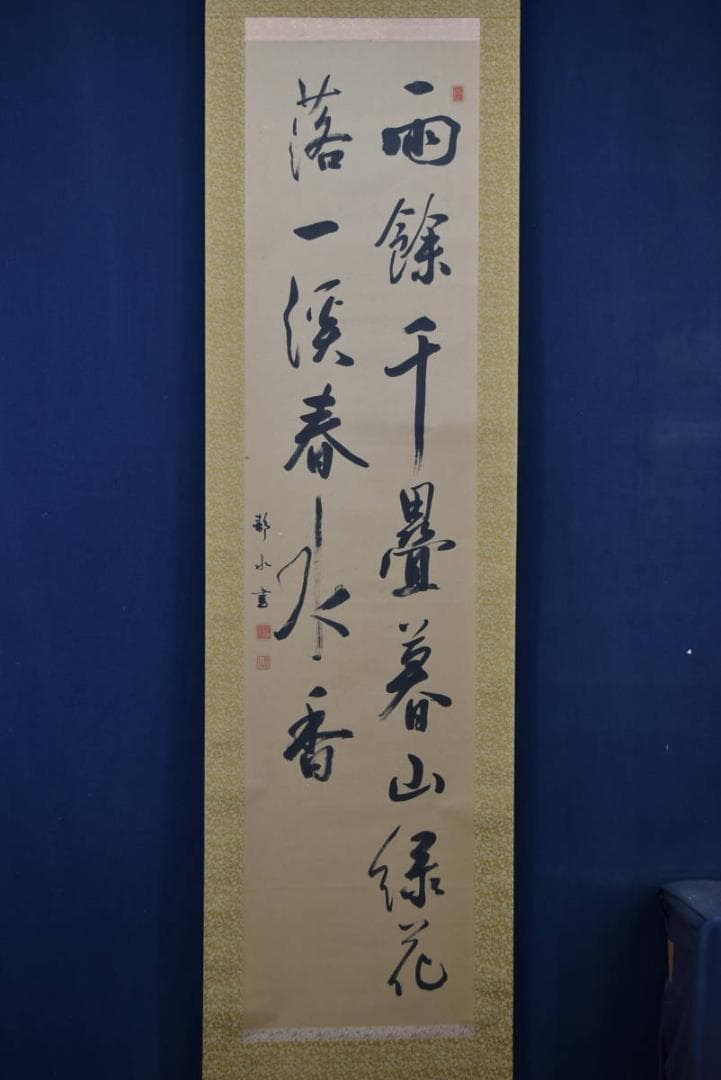 雨餘千疊暮山綠花
落一溪春水香
水書